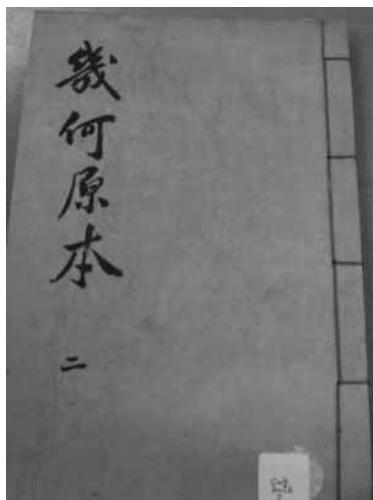 幾何原本
二